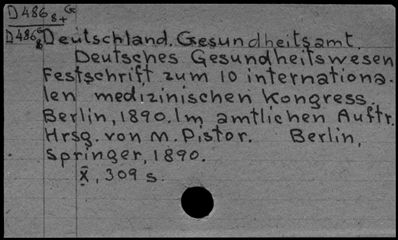 D486 8+ G
D486 G 8
Deutschland. Gesundheitsamt.
Deutsches Gesundheitswesen
Festschrift zum 10 internationa-
len medizinischen Kongress.
Berlin, 1890. Im amtlichen Auftr.
Hrsg. von M. Pistor. Berlin,
Springer, 1890.
X, 309 s.